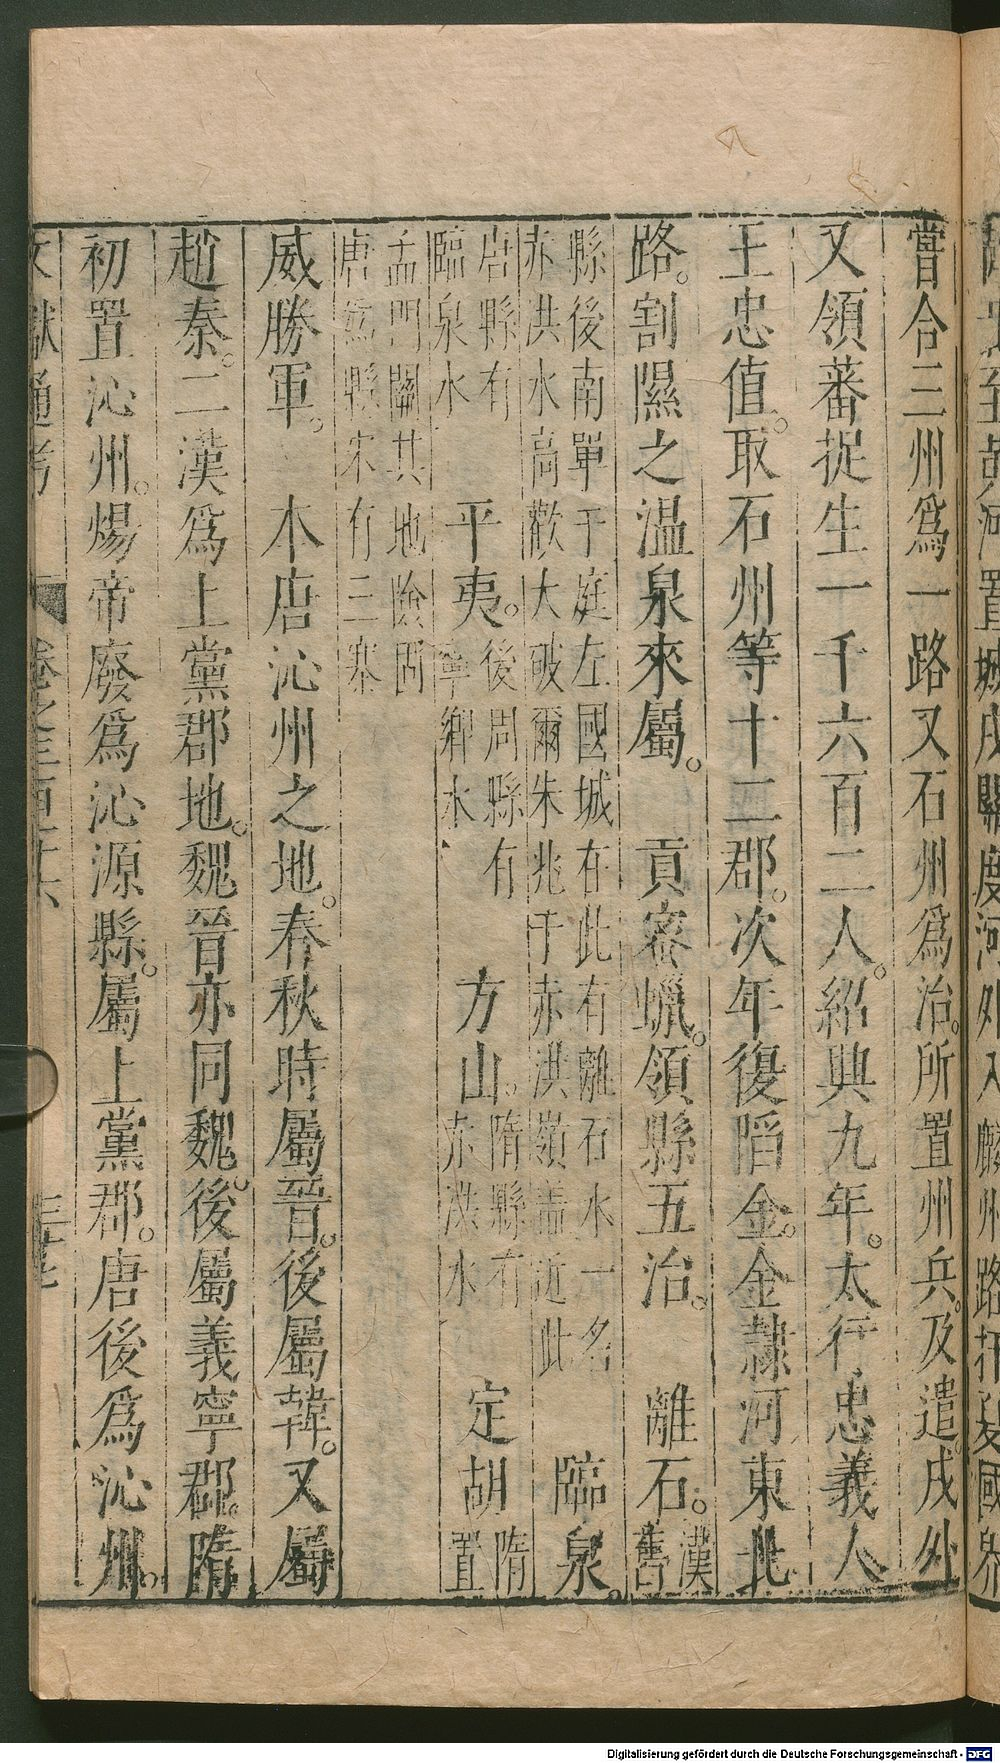 至黃河置城戍關度河外入麟州路扞夏國界
嘗合三州爲一路又石州爲治。所置州兵。及遣。戍外
又領蕃捉生一千六百二人。紹興九年。太行忠義人
王忠值。取石州等十二郡。次年復陷金。金隷河東北
路。割隰之溫泉來屬。　貢蜜蠟。領縣五治。　離石。漢舊
縣後南單于庭左國城在此有離石水一名
赤洪水高歡大破爾朱兆于赤洪嶺盖近此　臨泉。
唐縣有臨泉水　平夷。後周縣有寧鄉水　方山。隋縣有赤洪水　定胡隋置
孟門關其地險固
唐爲縣宋有三寨
威勝軍。　本唐沁州之地。春秋時屬晉。後屬韓。又屬
趙秦。二漢爲上黨郡地。魏晉亦同魏。後屬義寧郡。隋
初置沁州。煬帝廢爲沁源縣。屬上黨郡。唐後爲沁州。
文獻通考
Digitalisierung gefördert durch die Deutsche Forschungsgemeinschaft - DFG